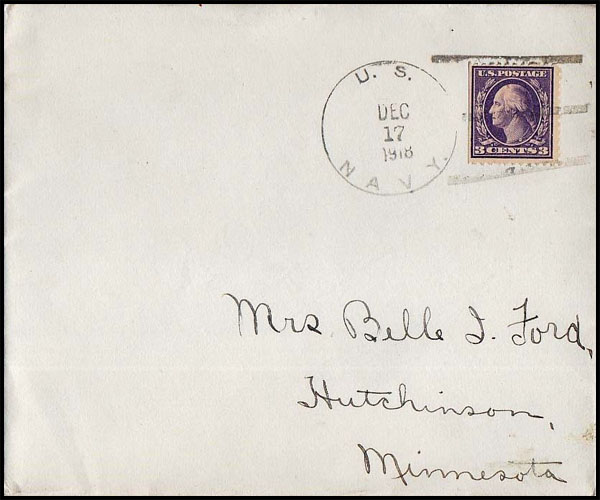 U. S.
DEC
17
1918
NAVY.
U.S. POSTAGE
3 CENTS 3
Mrs Belle I. Ford,
Hutchinson,
Minnesota